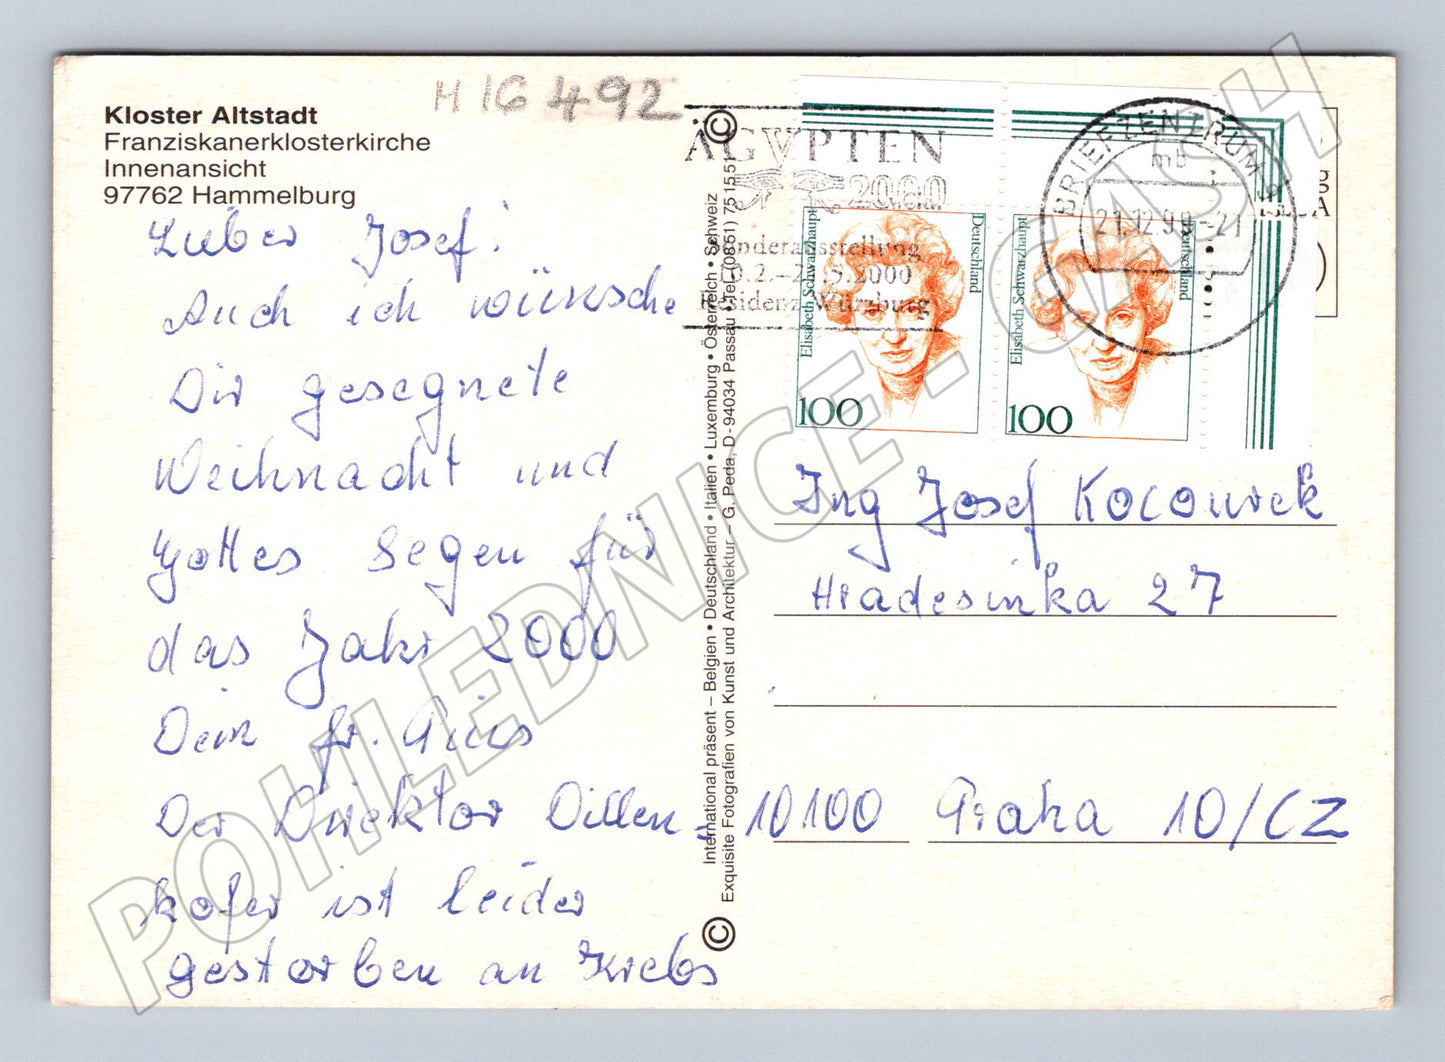 H IG 492
Kloster Altstadt
Franziskanerklosterkirche
Innenansicht
97762 Hammelburg
Lieber Josef!
Auch ich wünsche
Dir gesegnete
Weihnacht und
Gottes Segen für
das Jahr 2000
Dein fr. Pius
Der Direktor Dillen-
kofer ist leider
gestorben an Krebs
©
International präsent – Belgien • Deutschland • Italien • Luxemburg • Österreich • Schweiz
Exquisite Fotografien von Kunst und Architektur – G. Peda, D-94034 Passau • Tel. (0851) 75 15 51
©
ÄGYPTEN
2000
Sonderausstellung
2000
Residenz Würzburg
BRIEFZENTRUM
mb
21.12.99-21
Deutschland
Elisabeth Schwarzhaupt
100
Deutschland
Elisabeth Schwarzhaupt
100
Ing Josef Kocourek
Hradesinka 27
10100 Praha 10/CZ
POHLEDNICE - CASH